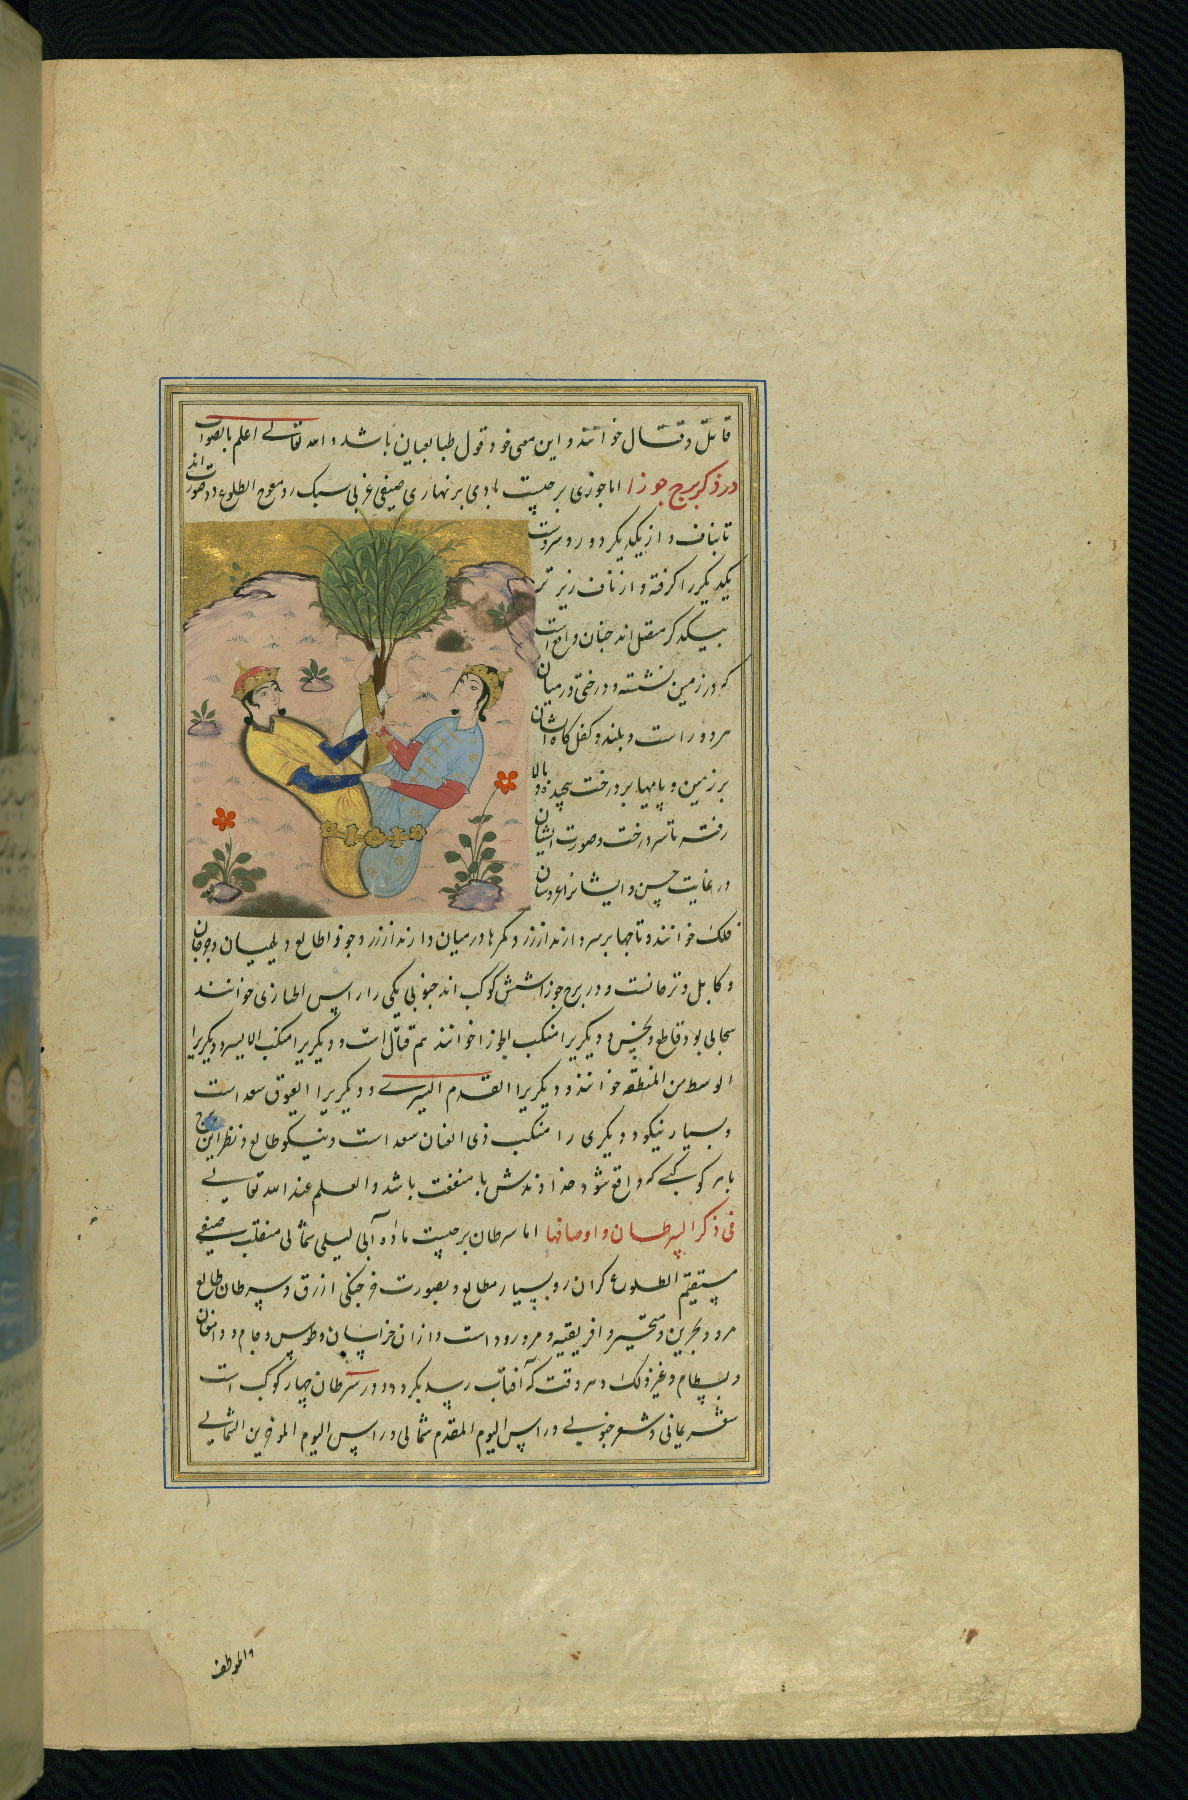 قاتل و قتال خوانند و این معنی خود قول طبایعیان باشد و الله تعالی اعلم بالصواب
در ذکر برج جوزا اما جوزی برجیست بادی بر نهاری صیفی غربی سبک رو معوج الطلوع دو صورت اند
تا بناف و از یکدیگر دور و سر و دست
یکدیگر را گرفته و از ناف زیر تر
بیکدیگر متصل اند چنان واقع است
که در زمین نشسته و درختی در میان
هر دو راست و بلند و کفل کاه ایشان
بر زمین و پایها بر درخت پیچیده و بالا
رفته تا سر درخت و صورت ایشان
در غایت حسن و ایشانرا عروسان
فلک خوانند و تاجها بر سر دارند از زر و کمرها در میان دارند از زر و جوزا طالع دیلمیان و جرجان
و کابل و ترخانست و در برج جوزا شش کوکب اند جنوبی یکی را راس الجباری خوانند
سحابی بود قاطع و نحس و دیگریرا منکب الجوزا خوانند هم قتال است و دیگریرا منکب الایسر و دیگریرا
الوسط من المنطقه خوانند و دیگریرا القدم الیسری و دیگریرا العیوق سعد است
و بسیار نیکو و دیگری را منکب ذی العنان سعد است و نیکو طالع و نظر این برج
با هر کوکبی که واقع شود خداوندش با منفعت باشد و العلم عند الله تعالی
فی ذکر السرطان و اوصافها اما سرطان برجیست ماده آبی لیلی شمالی منقلب صیفی
مستقیم الطلوع گران رو بسیار مطالع و بصورت خرچنگی ازرق و سرطان طالع
مرو و بحرین و افریقیه و مرورود است و از آن خراسان و طوس و جام و دامغان
و بسطام و غیر ذلک و هر وقت که آفتاب رسد بگردد و در سرطان چهار کوکب است
شعری یمانی و شعر جنوبی و راس التوم المقدم شمالی و راس التوم الموخرین الشمالی